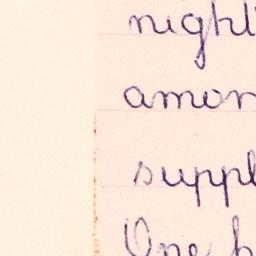 night
amon
suppl
One h